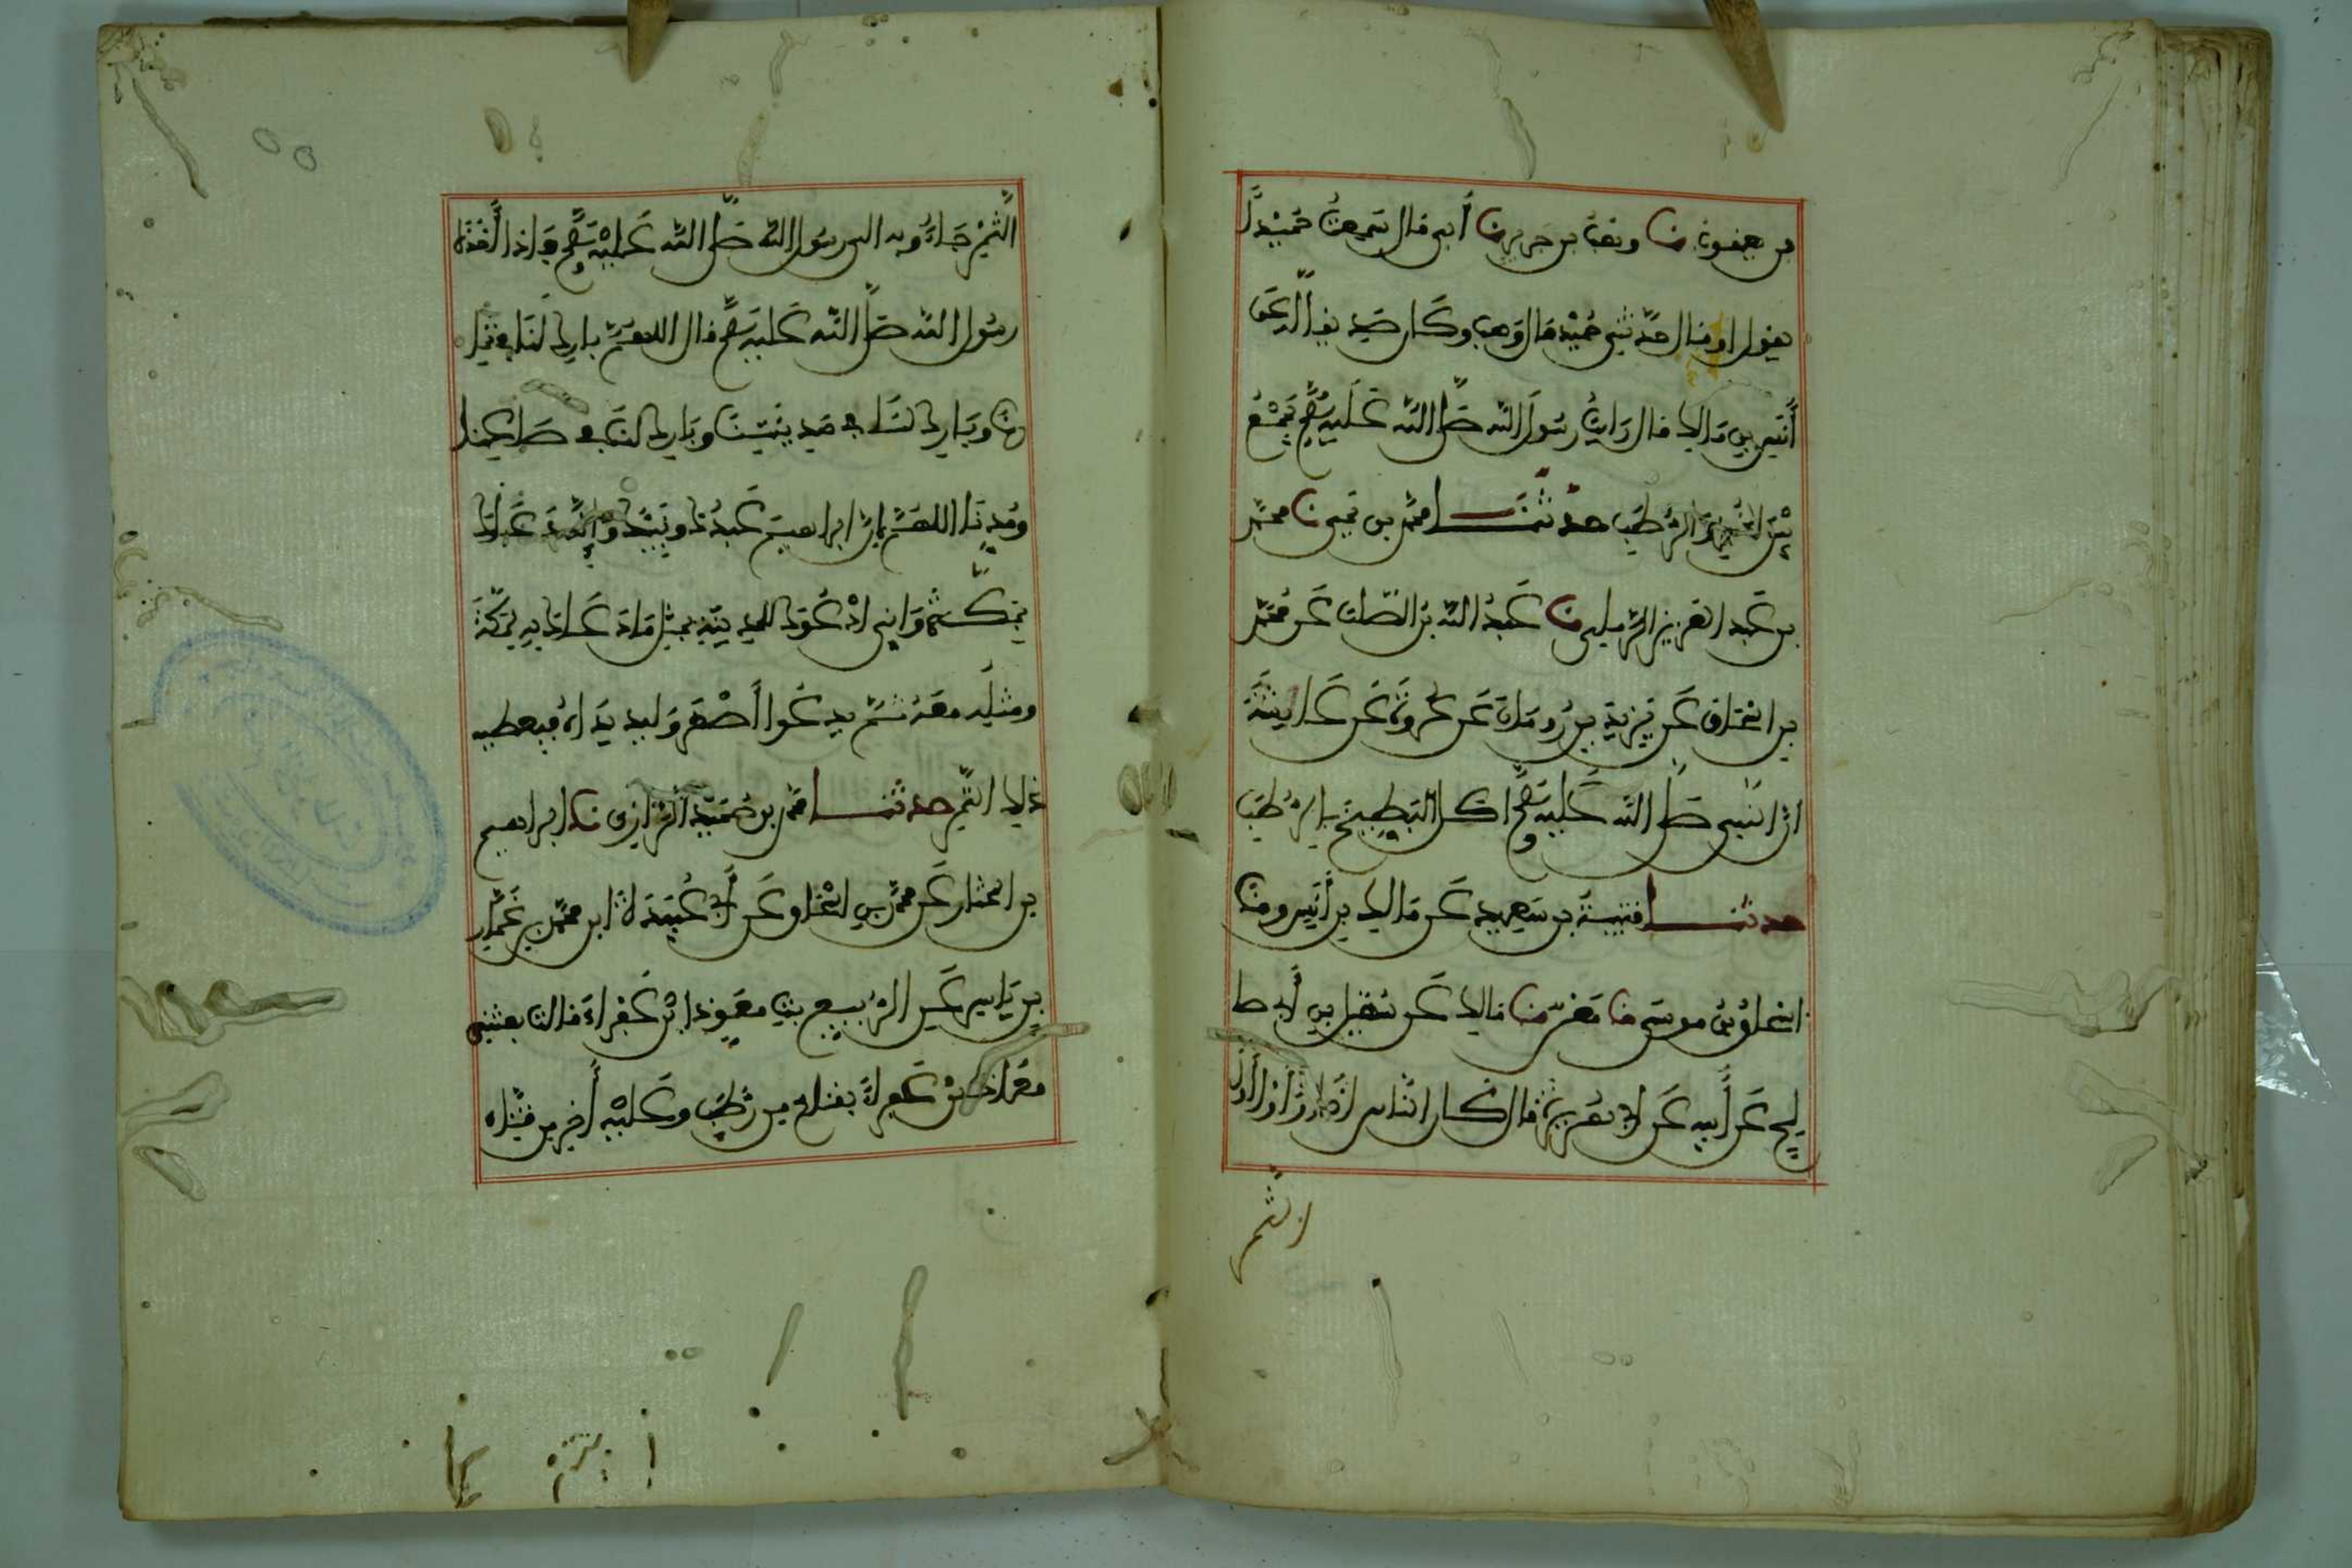 بن يعقوب نا وهب بن جرير نا أبي قال سمعت حميدا
يقول او قال حدثني حميد قال وهب وكان صديقا له عن
أنس بن مالك قال رايت رسول الله صلى الله عليه وسلم يجمع
بين الخربز والرطب حدثنا محمد بن يحيى نا محمد
بن عبد العزيز الرملي نا عبد الله بن الصلت عن محمد
بن اسحاق عن يزيد بن رومان عن عروة عن عايشة
ان النبي صلى الله عليه وسلم اكل البطيخ بالرطب
حدثنا قتيبة بن سعيد عن مالك بن أنس ونا
اسحاق بن موسى نا معن نا مالك عن سهيل بن أبي صا
لح عن أبيه عن أبي هريرة قال كان الناس اذا راوا اول
الثمر
الثمر جاءوا به الى رسول الله صلى الله عليه وسلم فاذا أخذه
رسول الله صلى الله عليه وسلم قال اللهم بارك لنا في ثما
رنا وبارك لنا في مدينتنا وبارك لنا في صاعنا
ومدنا اللهم ان ابراهيم عبدك ونبيك وانه دعاك
لمكة واني ادعوك للمدينة بمثل ما دعاك به لمكة
ومثله معه ثم يدعوا أصغر وليد يراه فيعطيه
ذلك الثمر حدثنا محمد بن حميد الرازي نا ابراهيم
بن المختار عن محمد بن اسحاق عن أبي عبيدة بن محمد بن عمار
بن ياسر عن الربيع بنت معوذ ابن عفراء قالت بعثني
معاذ بن عفراء بقناع من رطب وعليه أجر من قثاء